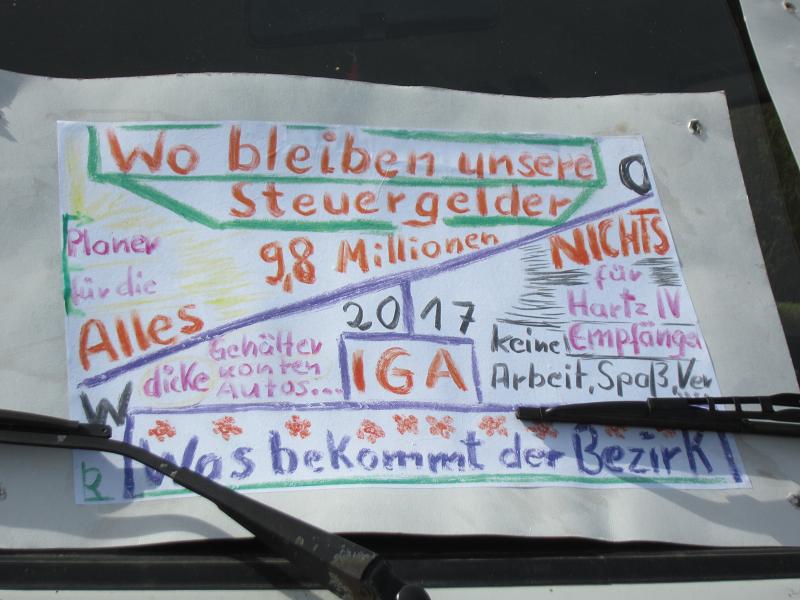 Wo bleiben unsere
Steuergelder
O
Planer
für die
9,8 Millionen
NICHTS
für
Hartz IV
Empfänger
Alles
2017
IGA
Gehälter
dicke Konten
Autos...
keine
Arbeit, Spaß, Ver
W
Was bekommt der Bezirk